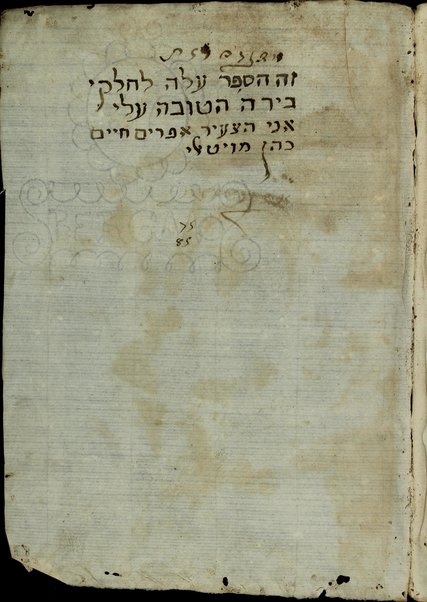 זה הספר עלה לחלקי
כיד ה הטובה עלי
אני הצעיר אפרים חיים
כהן מויטלי
75
85